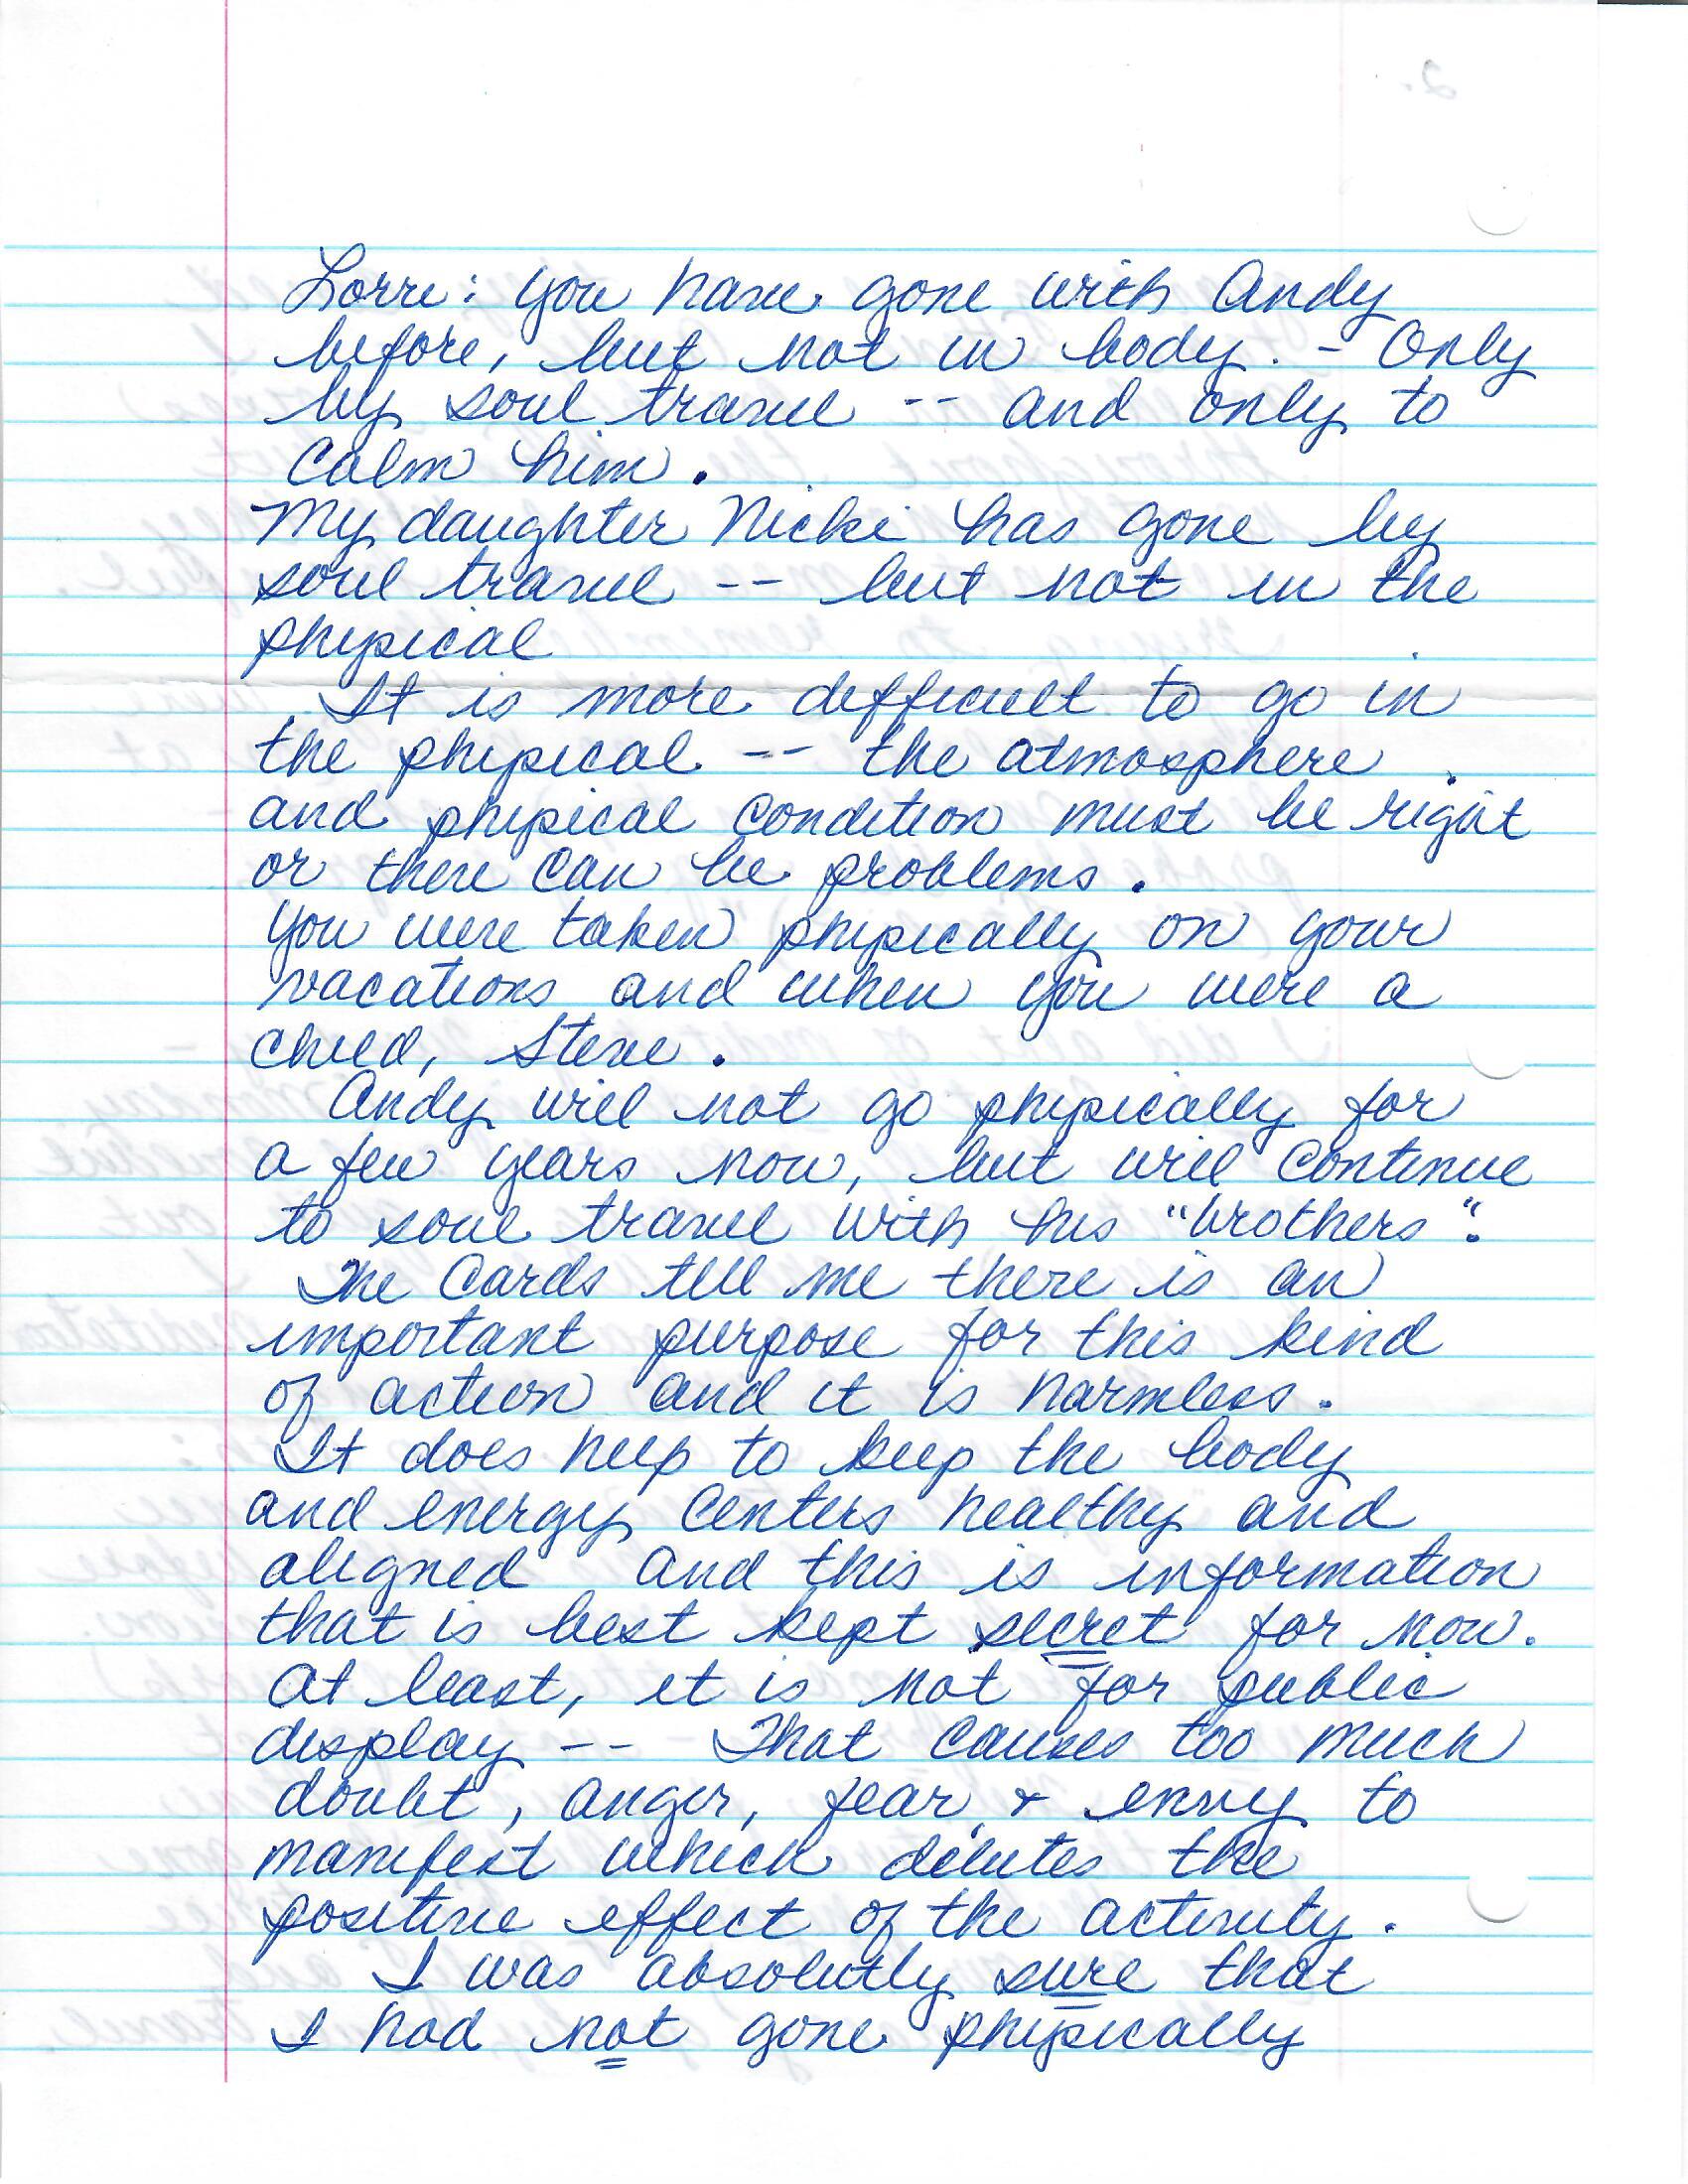 Lorre: you have gone with Andy
before, but not in body. - Only
by soul travel -- and only to
calm him.
My daughter Nicki has gone by
soul travel -- but not in the
physical
It is more difficult to go in
the physical -- the atmosphere
and physical condition must be right
or there can be problems.
You were taken physically on your
vacations and when you were a
child, Steve.
Andy will not go physically for
a few years now, but will continue
to soul travel with his "brothers".
The cards tell me there is an
important purpose for this kind
of action and it is harmless.
It does help to keep the body
and energy centers healthy and
aligned and this is information
that is best kept secret for now.
At least, it is not for public
display -- That causes too much
doubt, anger, fear, & envy to
manifest which dilutes the
positive effect of the activity.
I was absolutly sure that
I had not gone physically